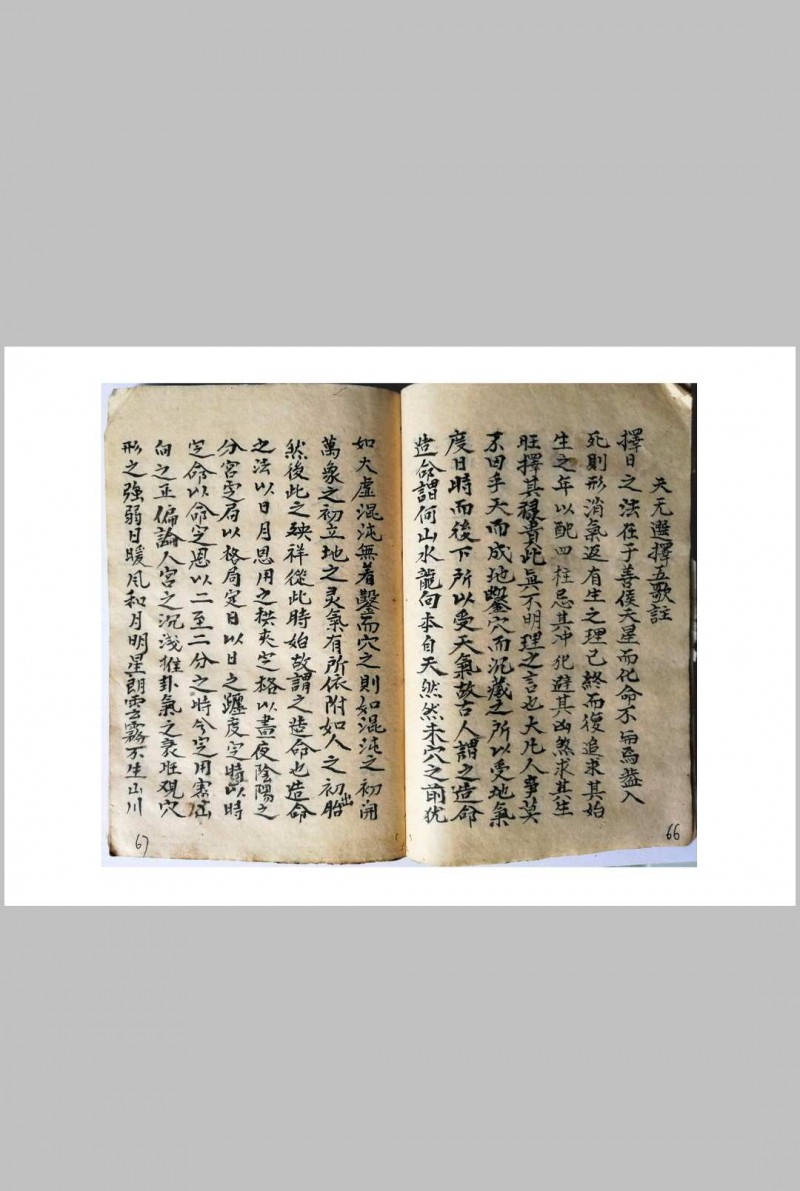 天元選擇五歌註
擇日之法在于善侯天星而化命不與焉蓋人
死則形消氣返有生之理已終而復追求其始
生之年以配四柱忌其冲化避其凶煞求其生
旺擇其祿貴此真不明理之言也大凡人事莫
不由乎天而成地鑿穴而沉藏之所以受地氣
度日時而後下所以受天氣故古人謂之造命
造命謂何山水龍向本自天然然未穴之前犹
66
如大虛混沌無着鑿而穴之則如混沌之初開
萬象之初立地之灵氣有所依附如人之初出胎
然後此之殃祥從此時始故謂之造命也造命
之法以日月恩用之拱夾定格以晝夜陰陽之
分宮定局以格局定日以日之躔度定時以時
定命以命定恩以二至二分之時令定用
向之正偏論入宮之沉浅推卦氣之衰旺观穴
形之強弱日暖風和月明星朗雲霧不生山川
67